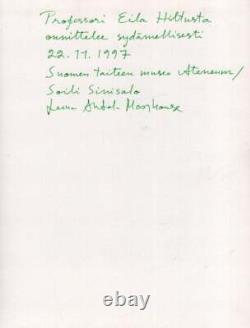 Professori Eila Hiltusta
onnittelee sydämellisesti
22.11.1997
Suomen taiteen museo Ateneum/
Soili Sinisalo
Leena Ahtola-Moorhouse
ebay